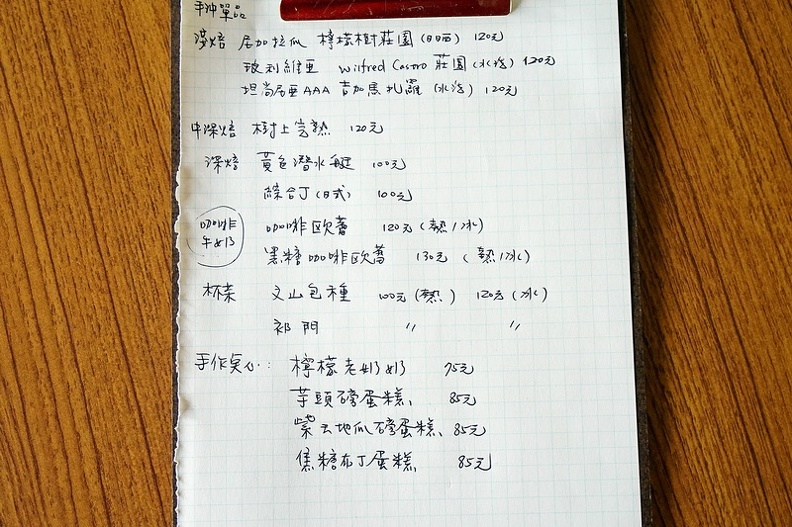 手沖單品
淺焙 尼加拉瓜 檸檬樹莊園(日曬) 120元
玻利維亞 Wilfred Castro 莊園(水洗) 120元
坦尚尼亞AAA 吉加馬扎羅 (水洗) 120元
中深焙 樹上完熟 120元
深焙 黃色潛水艇 100元
綜合丁(日式) 100元
咖啡牛奶 咖啡欧蕾 120元(熱/冰)
黑糖咖啡欧蕾 130元 (熱/冰)
杯茶 文山包種 100元(熱) 120元(冰)
祁門 〃 〃
手作点心: 檸檬老奶奶 75元
芋頭磅蛋糕、 85元
紫云地瓜磅蛋糕、85元
焦糖布丁蛋糕 85元